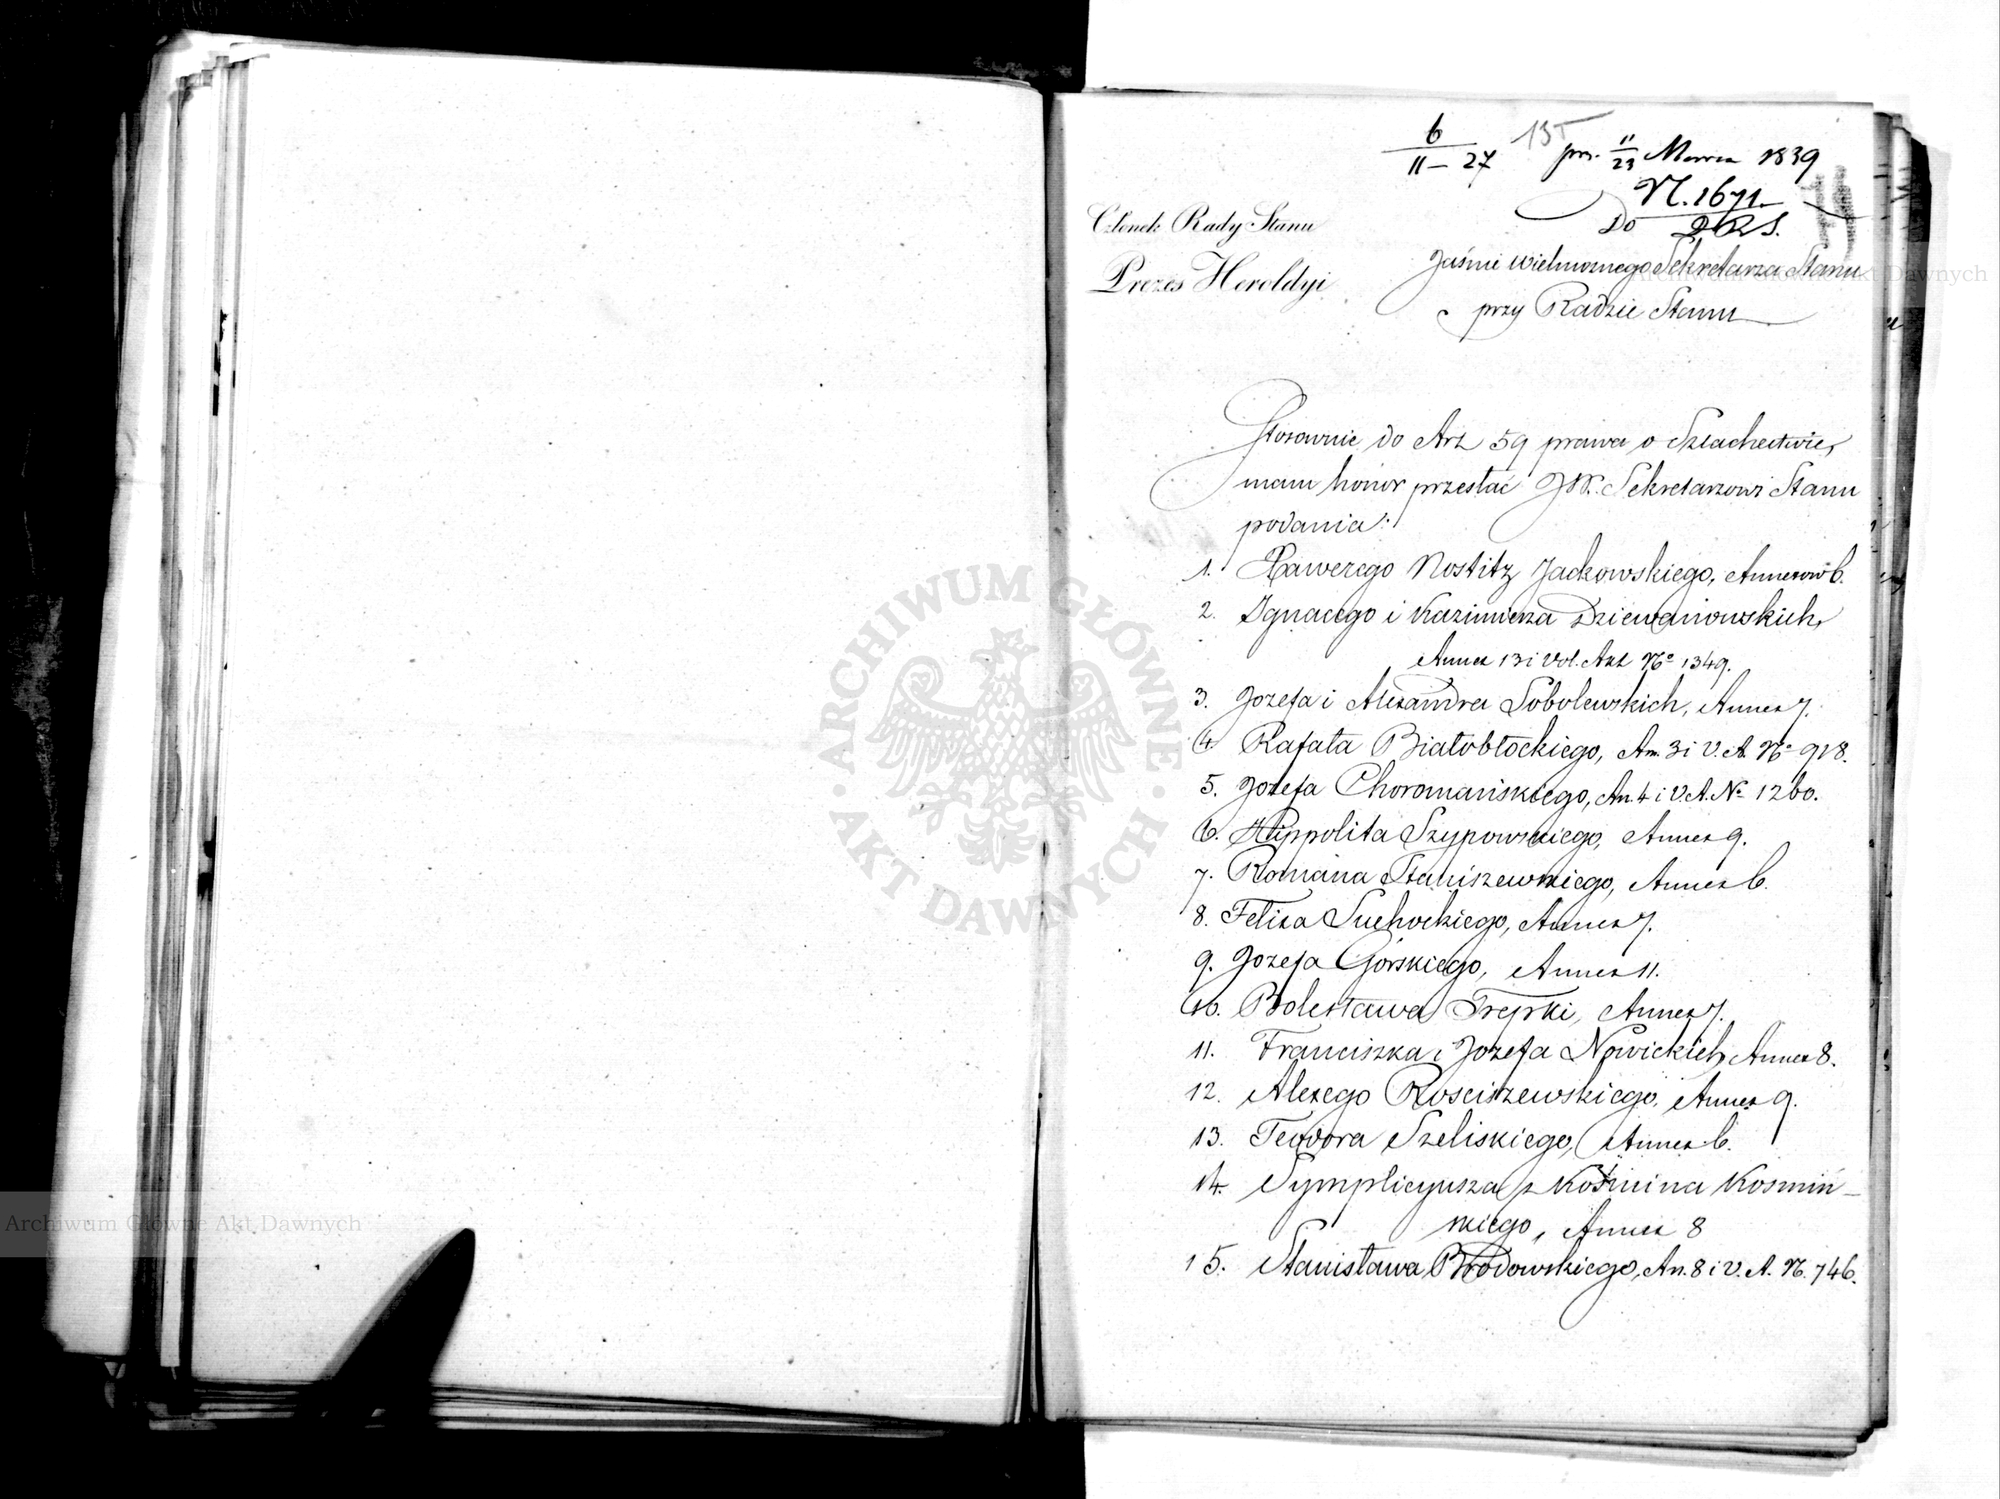 6 / 11 – 27
135
pr. 11/23 Marca 1839
N. 1671.
Do
Członek Rady Stanu
Prezes Heroldyi
Jaśnie Wielmożnego Sekretarza Stanu
przy Radzie Stanu
Stosownie do Art 59 prawa o Szlachectwie,
mam honor przesłać JW. Sekretarzowi Stanu
podania:
1. Xawerego Nostitz Jackowskiego, Annexów 6.
2. Ignacego i Kazimierza Dziewanowskich,
Annex 13 i Vol. Akt No 1349.
3. Jozefa i Alexandra Sobolewskich, Annex 7.
4. Rafała Białobłockiego, An. 3 i V. A. No 918.
5. Jozefa Choromańskiego, An. 4 i V. A. No 1260.
6. Hippolita Szypowskiego, Annex 9.
7. Romana Staniszewskiego, Annex 6.
8. Felixa Suchockiego, Annex 7.
9. Jozefa Górskiego, Annex 11.
10. Bolesława Trepki, Annex 7.
11. Franciszka i Jozefa Nowickich, Annex 8.
12. Alexego Rosciszewskiego, Annex 9.
13. Teodora Szeliskiego, Annex 6.
14. Symplicyusza z Koźmina Kosmiń-
skiego, Annex 8
15. Stanisława Brodowskiego, An. 8 i V. A. N. 746.
ARCHIWUM GŁÓWNE
· AKT DAWNYCH ·
Archiwum Główne Akt Dawnych
Archiwum Główne Akt Dawnych